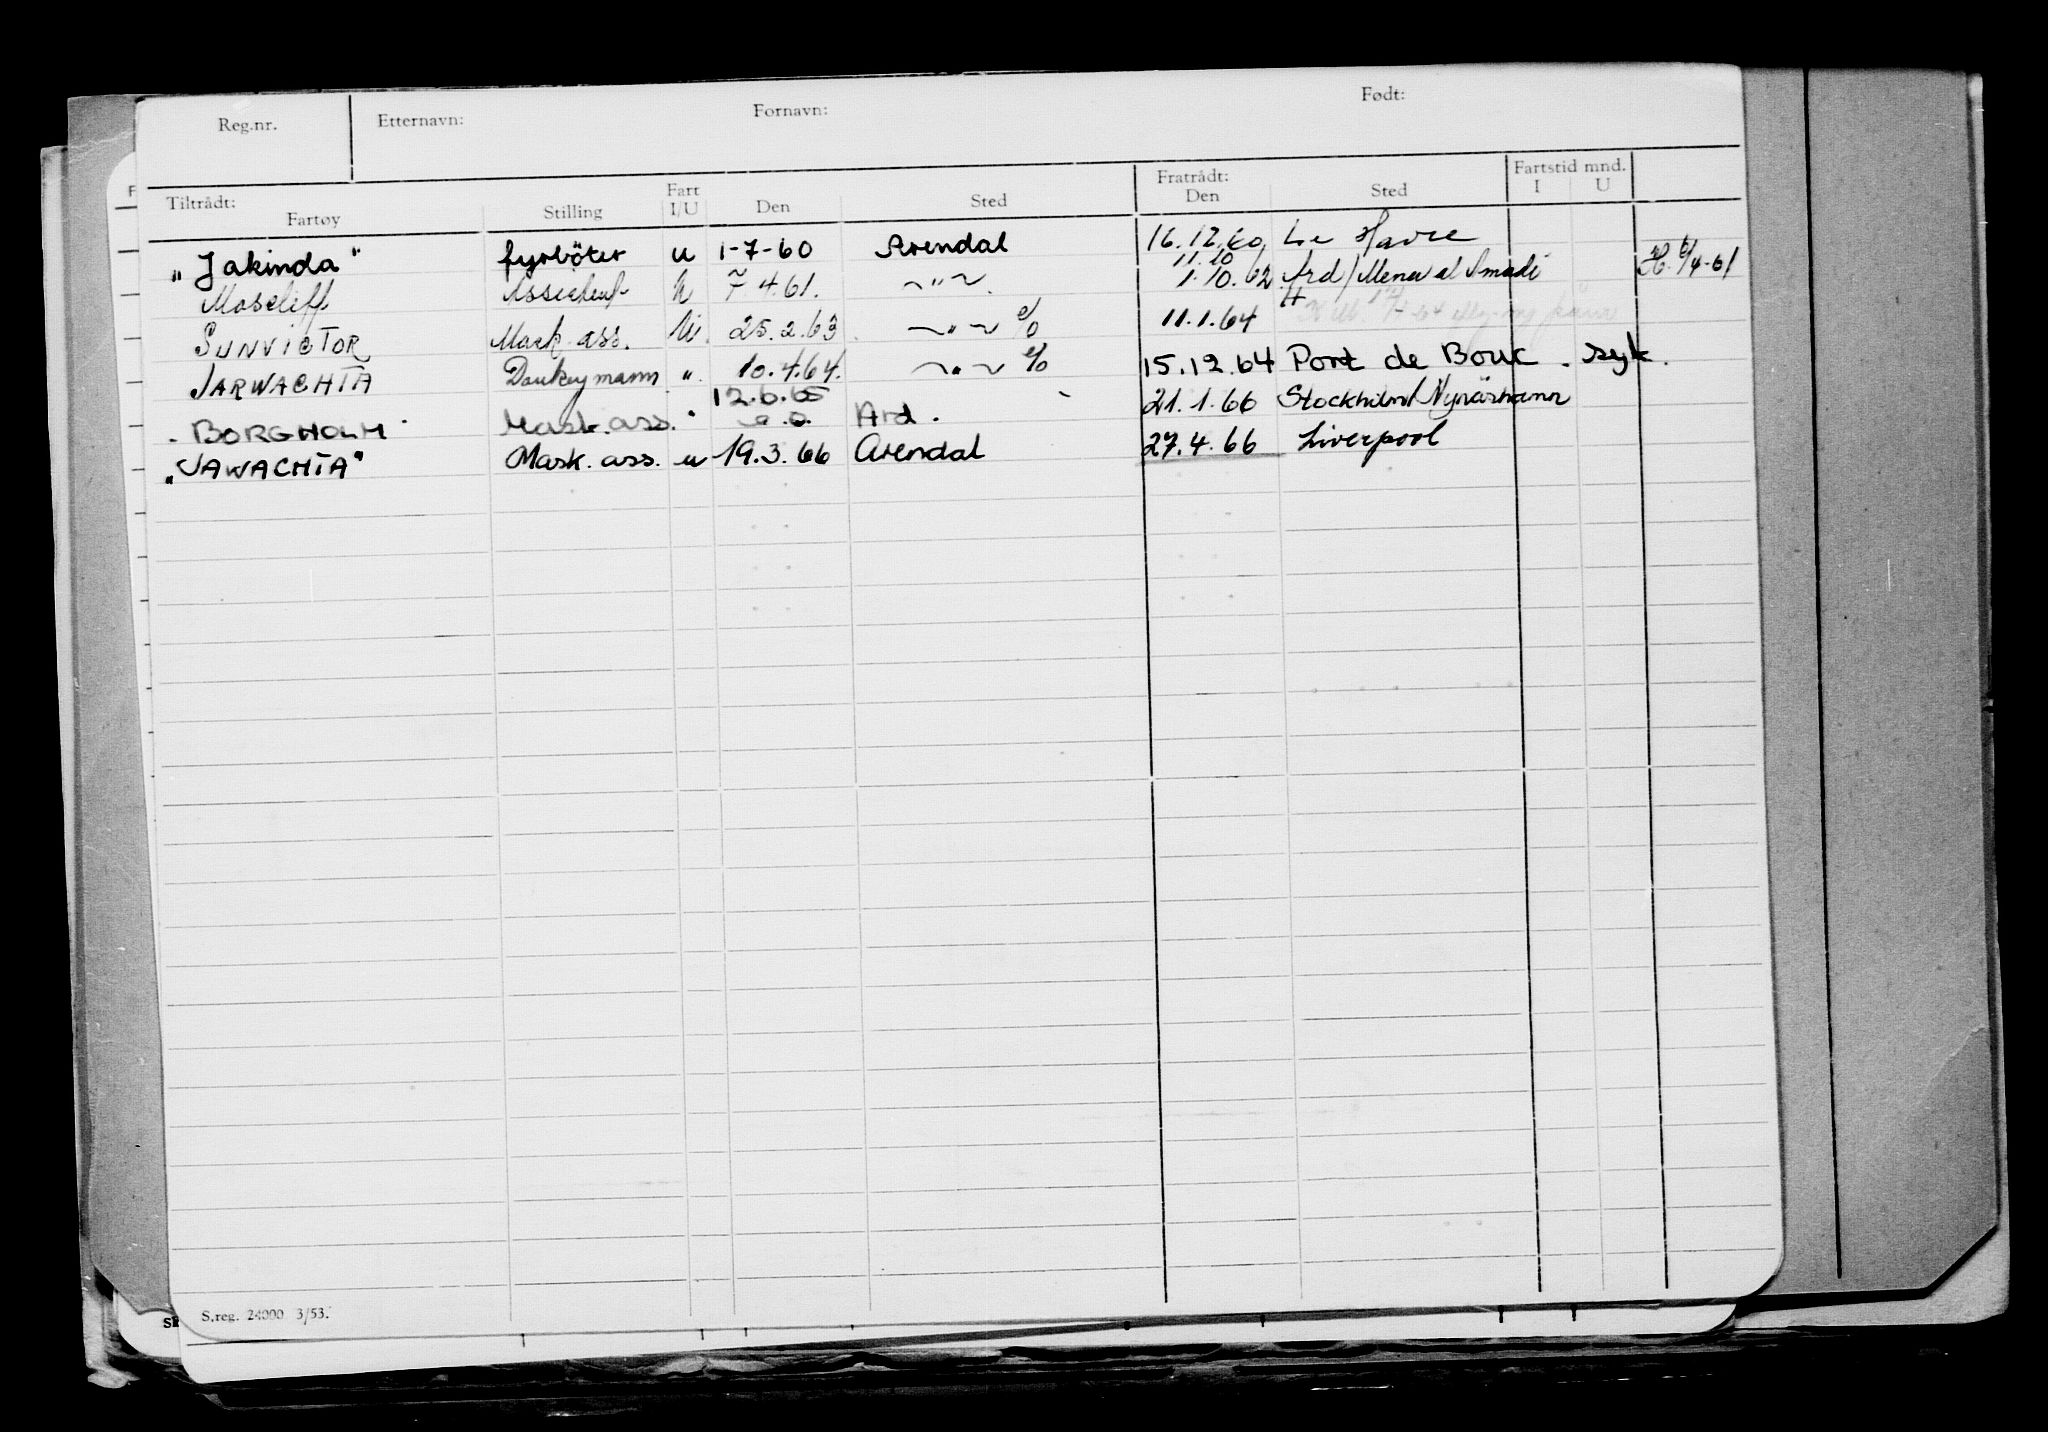 Reg.nr. Etternavn: Fornavn: Født:
Tiltrådt: Fartøy Stilling Fart I/U Den Sted Fratrådt: Den Sted Fartstid mnd. I U
"Jakinda" fyrböter u 1-7-60 Arendal 16.12.60 Le Havre
Moscliff U 7 4.61. —"— 11.10 1.10.62 Ard/Mena al H. 6/4-61
SUNVICTOR Mask. ass. U. 25.2.63 —"— 11.1.64
JARWACHTA Donkeymann " 10.4.64. —"— 15.12.64 Port de Bouc. syk.
"BORGHOLM" Mask. ass. " 12.6.65 Ard. 21.1.66 Stockholm/Nynäshamn
"JAWACHTA" Mask. ass. u 19.3.66 Arendal 27.4.66 Liverpool
S.reg. 24000 3/53.